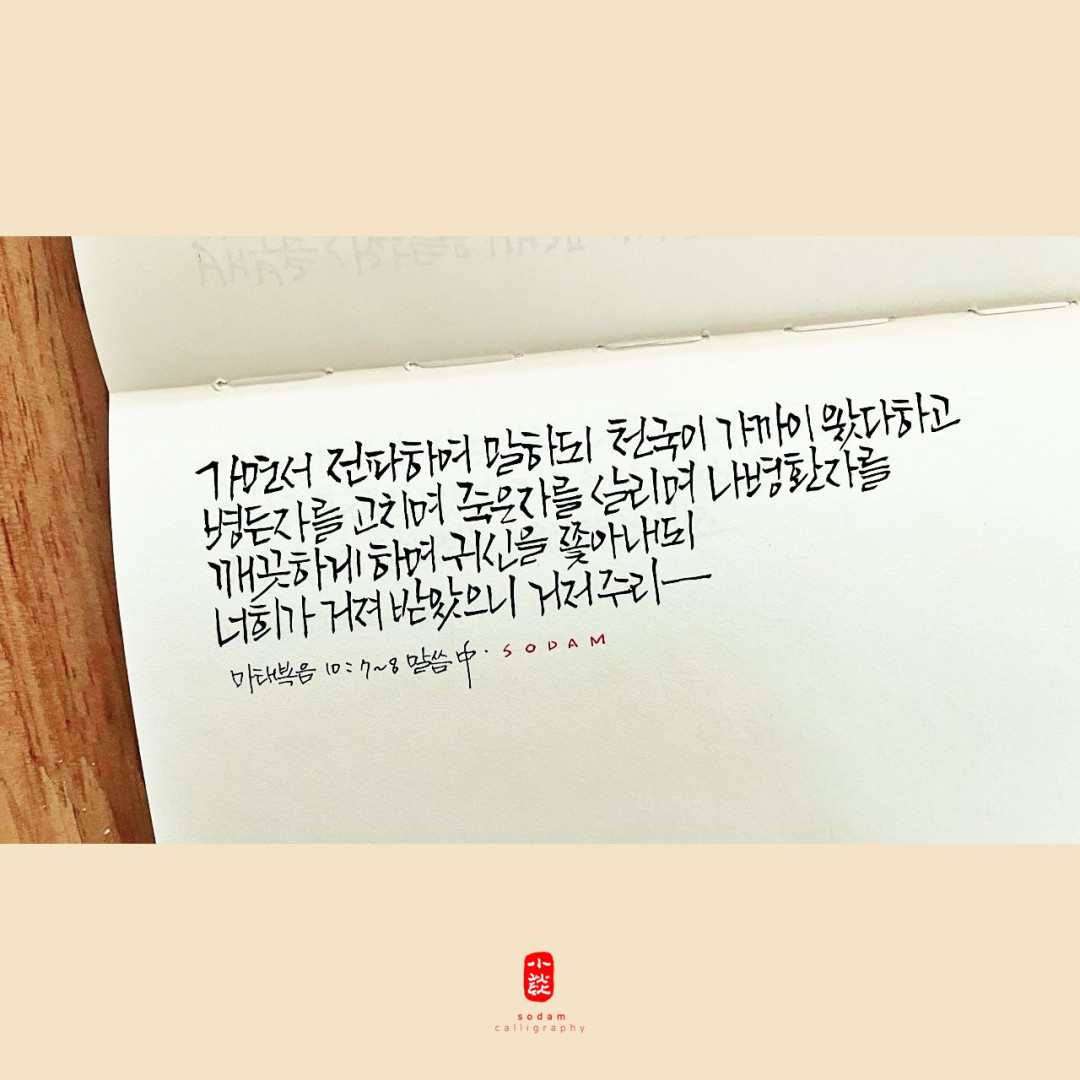 가면서 전파하여 말하되 천국이 가까이 왔다하고
병든자를 고치며 죽은자를 살리며 나병환자를
깨끗하게 하며 귀신을 쫓아내되
너희가 거져 받았으니 거저 주라ㅡ
마태복음 10:7~8 말씀 中. SODAM
小談
sodam
calligraphy